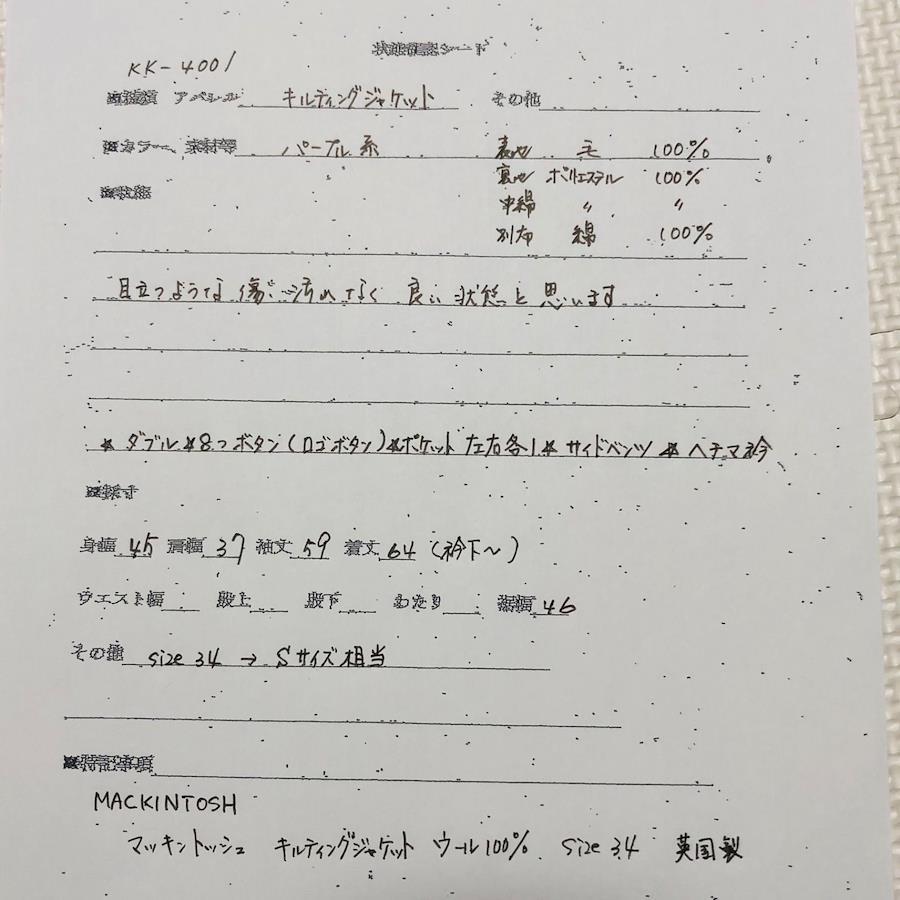 状態確認シート
KK-4001
■種類 アパレル キルティングジャケット その他
■カラー、素材等 パープル系 表地 毛 100%
裏地 ポリエステル 100%
■状態 中綿 〃 〃
別布 綿 100%
目立つような傷、汚れなく 良い状態と思います
★ ダブル ★8つボタン(ロゴボタン)★ポケット 左右各1 ★ サイドベンツ ★ ヘチマ衿
■採寸
身幅 45 肩幅 37 袖丈 59 着丈 64 (衿下〜)
ウエスト幅 股上 股下 わたり 裾幅 46
その他 size 34 → Sサイズ相当
■特記事項
MACKINTOSH
マッキントッシュ キルティングジャケット ウール100% size 34 英国製